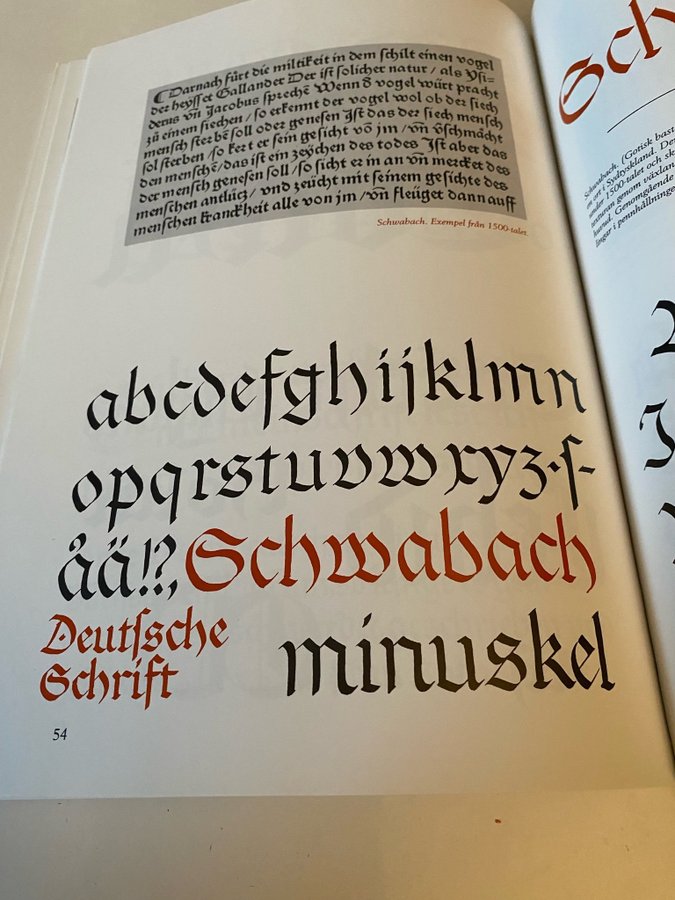 Darnach fürt die miltikeit in dem schilt einen vogel
der heyſſet Gallander Der iſt ſolicher natur / als Yſi-
derus vñ Jacobus ſprechẽ Wenn 8 vogel würt pracht
zů einem ſiechen / ſo erkennt der vogel wol ob der ſiech
menſch ſterbẽ ſoll oder geneſen Jſt das der ſiech menſch
ſol ſterben / ſo kert er ſein geſicht võ jm / vñ v̈ſchmächt
den menſchẽ / das iſt ein zeychen des todes Jſt aber das
der menſch geneſen ſoll / ſo ſicht er in an vñ mercket des
menſchen antlücz / vnd zeücht mit ſeinem geſichte des
menſchen kranckheit alle von jm / vñ fleüget dann auff
Schwabach. Exempel från 1500-talet.
abcdefghijklmn
opqrstuvwxyz·ſ-
åä!?,Schwabach
Deutſsche
Schrift
minuskel
54
Sch
Schwabach. (Gotisk bast
en ort i Sydtyskland. De
under 1500-talet och sk
texturan genom växlan
huvud. Genomgående
lingar i pennhållninge